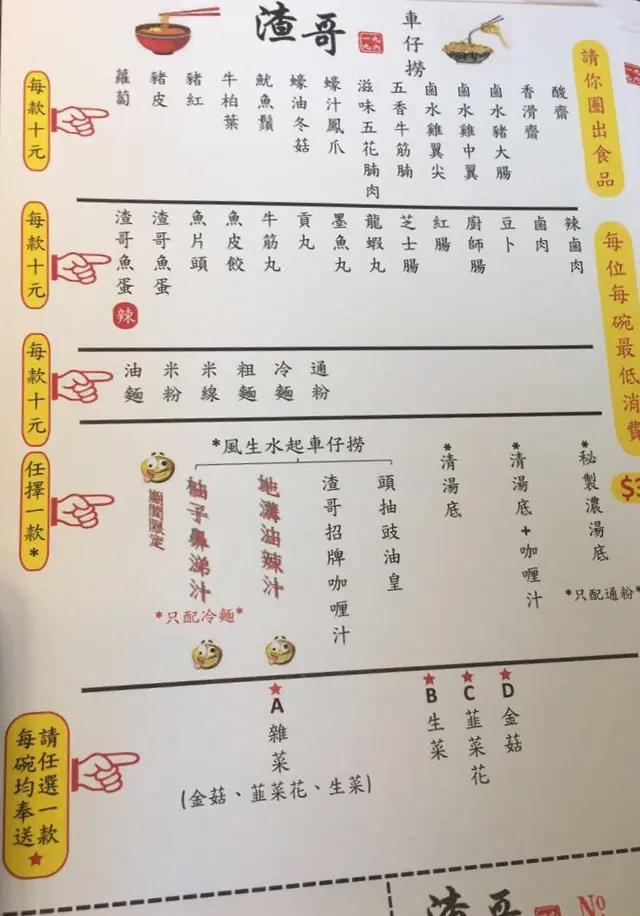 渣哥
一九九六
車仔撈
請你圈出食品
每位每碗最低消費
$3
每款十元
蘿蔔
豬皮
豬紅
牛柏葉
魷魚鬚
蠔油冬菇
蠔汁鳳爪
滋味五花腩肉
五香牛筋腩
鹵水雞翼尖
鹵水雞中翼
鹵水豬大腸
香滑齋
酸齋
每款十元
渣哥魚蛋 辣
渣哥魚蛋
魚片頭
魚皮餃
牛筋丸
貢丸
墨魚丸
龍蝦丸
芝士腸
紅腸
廚師腸
豆卜
鹵肉
辣鹵肉
每款十元
油麵
米粉
米線
粗麵
冷麵
通粉
任擇一款*
*風生水起車仔撈
期間限定
柚子鼻涕汁
*只配冷麵*
地溝油辣汁
渣哥招牌咖喱汁
頭抽豉油皇
*清湯底
*清湯底+咖喱汁
*秘製濃湯底
*只配通粉*
請任選一款
每碗均奉送
A
雜菜
(金菇、韮菜花、生菜)
B
生菜
C
韮菜花
D
金菇
渣哥
No